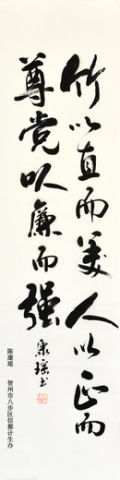 竹以直而美人以正而
尊党以廉而强
康瑶书
陈康瑶 贺州市八步区信都计生办